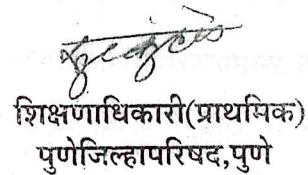 शिक्षणाधिकारी(प्राथमिक)
पुणेजिल्हापरिषद,पुणे